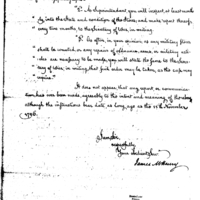 "1. As Superintendant you will inspect, at least
by into the state and condition of the stores, and make report
very two months, to the Secretary of War, in writing.
"2. As often, in your opinion, as any military stores
shall be wanted, or any repairs of ordnance, arms, or military
are necessary to be made, you will state the same to the
of War, in writing, that such order may be taken, as the
requires."
It does not appear, that any report, or communication
has ever been made, agreeably to the intent and meaning of the above,
although the instructions bear date, as long ago as the 11th November
1796.
I am, Sir,
respectfully
Your Obedient
James McHenry